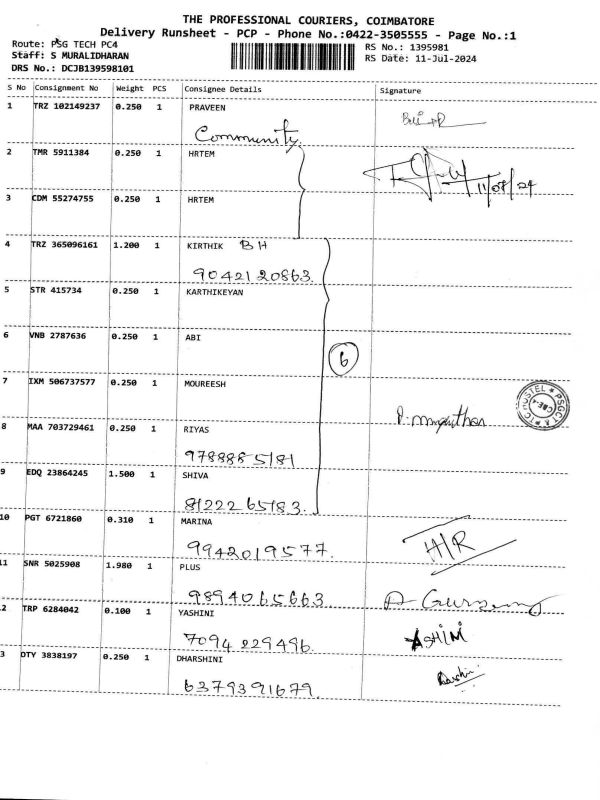 THE PROFESSIONAL COURIERS, COIMBATORE
Delivery Runsheet - PCP - Phone No.:0422-3505555 - Page No.:1
Route: PSG TECH PC4
Staff: S MURALIDHARAN
DRS No.: DCJB139598101
RS No.: 1395981
RS Date: 11-Jul-2024
S No Consignment No Weight PCS Consignee Details Signature
1 TRZ 102149237 0.250 1 PRAVEEN
Community
2 TMR 5911384 0.250 1 HRTEM
11/07/24
3 CDM 55274755 0.250 1 HRTEM
4 TRZ 365096161 1.200 1 KIRTHIK BH
9042120863
5 STR 415734 0.250 1 KARTHIKEYAN
6 VNB 2787636 0.250 1 ABI
6
7 IXM 506737577 0.250 1 MOUREESH
8 MAA 703729461 0.250 1 RIYAS
9788885181
9 EDQ 23864245 1.500 1 SHIVA
8122265183
10 PGT 6721860 0.310 1 MARINA
9942019577
11 SNR 5025908 1.980 1 PLUS
9894065663
2 TRP 6284042 0.100 1 YASHINI
7094229496
3 DTY 3838197 0.250 1 DHARSHINI
6379391679